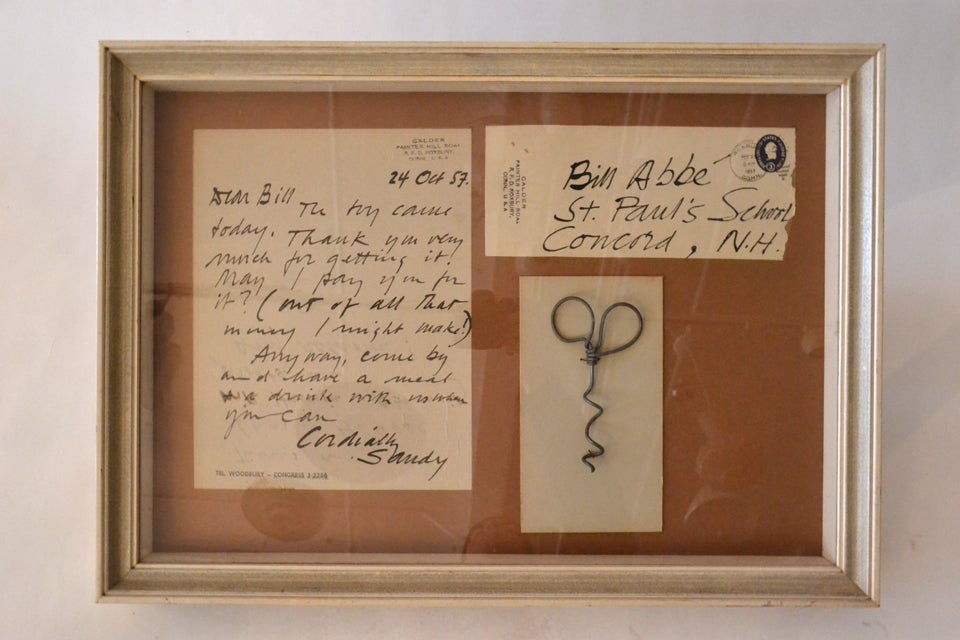 CALDER
PAINTER HILL ROAD
R.F.D. ROXBURY,
CONN. U.S.A
24 Oct 57.
Dear Bill
The toy came
today. Thank you very
much for getting it.
May I pay you for
it? (out of all that
money I might make!)
Anyway, come by
and have a meal
or drink with us when
you can
Cordially
Sandy
TEL. WOODBURY - CONGRESS 3-2286
CALDER
PAINTER HILL ROAD
R.F.D. ROXBURY,
CONN. U.S.A
Bill Abbé
St. Paul's School
Concord, N.H.
CONN.
1957